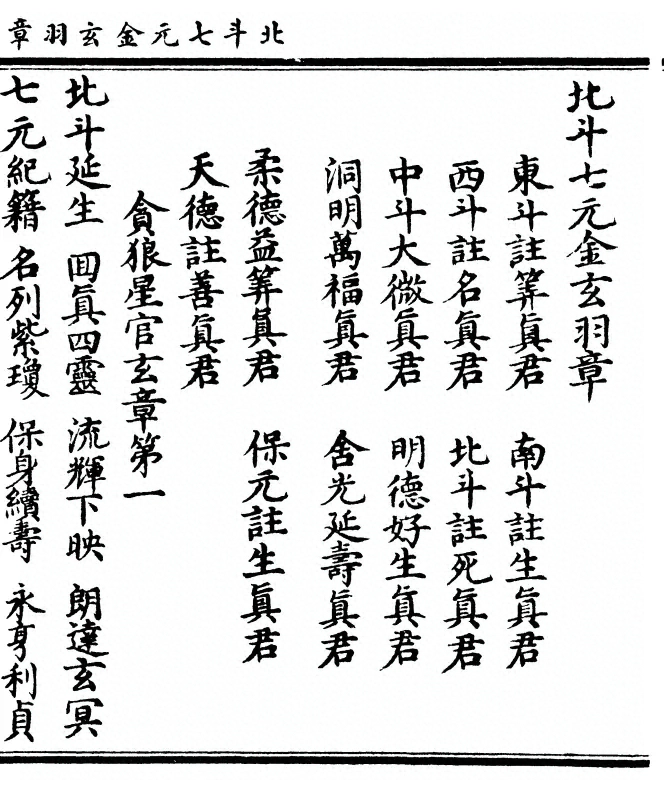 北斗七元金玄羽章
北斗七元金玄羽章
東斗註筭眞君　南斗註生眞君
西斗註名眞君　北斗註死眞君
中斗大微眞君　明德好生眞君
洞明萬福眞君　舍光延壽眞君
柔德益筭眞君　保元註生眞君
天德註善眞君
貪狼星官玄章第一
北斗延生　囬眞四靈　流輝下映　朗達玄冥
七元紀籍　名列紫瓊　保身續壽　永亨利貞